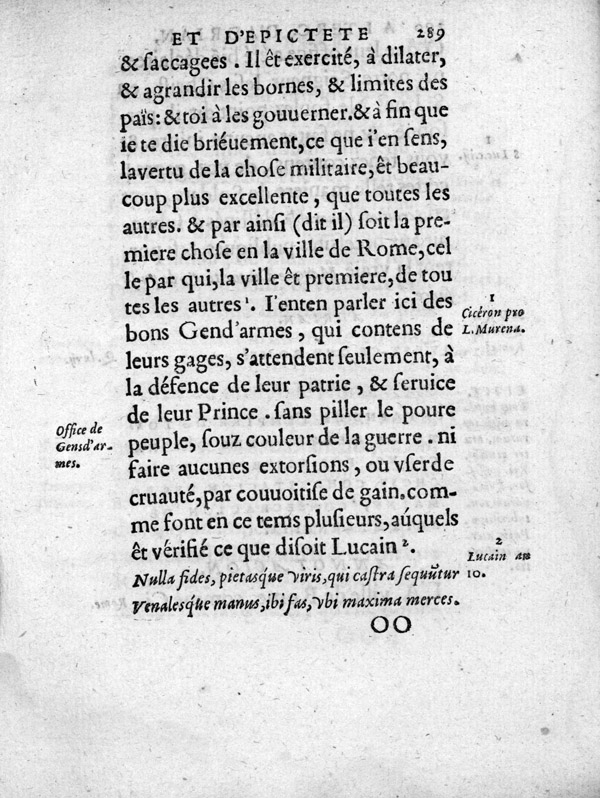 ET D'EPICTETE 289
& ſaccagees . Il êt exercité, à dilater,
& agrandir les bornes, & limites des
païs: & toi à les gouuerner. & à fin que
ie te die briéuement, ce que i'en ſens,
la vertu de la choſe militaire, êt beau-
coup plus excellente , que toutes les
autres. & par ainſi (dit il) ſoit la pre-
miere choſe en la ville de Rome, cel
le par qui, la ville êt premiere, de tou
tes les autres ¹. I'enten parler ici des
1
Cicéron pro
bons Gend'armes , qui contens de
L. Murena.
leurs gages, s'attendent ſeulement, à
la défence de leur patrie , & ſeruice
de leur Prince . ſans piller le poure
Office de
Gensd'ar-
mes.
peuple, ſouz couleur de la guerre . ni
faire aucunes extorſions , ou vſer de
cruauté, par couuoitiſe de gain. com-
me font en ce tems pluſieurs, aúquels
êt vérifié ce que diſoit Lucain ².
2
Lucain au
10.
Nulla fides, pietasque viris, qui caſtra ſequūtur
Venalesq́ue manus, ibi fas, vbi maxima merces.
OO